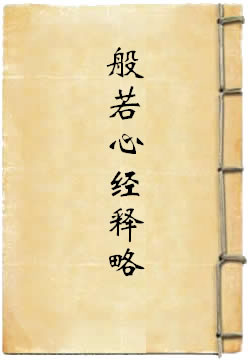 般若心经释略